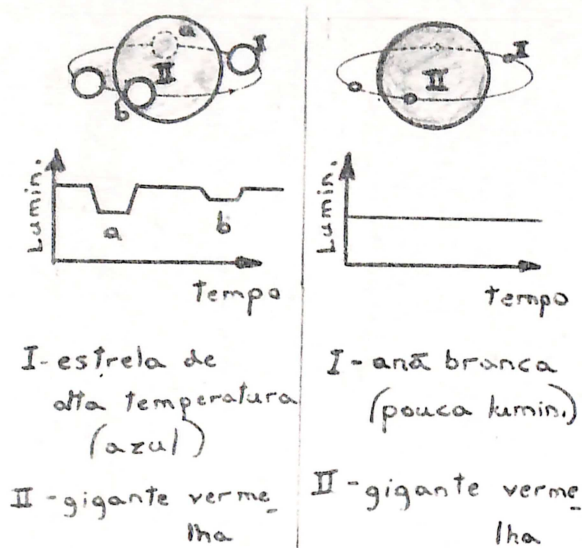 a
I
II
b
Lumin.
a
b
tempo
I - estrela de
alta temperatura
(azul)
II - gigante verme_
lha
I
II
Lumin.
tempo
I - anã branca
(pouca lumin.)
II - gigante verme_
lha